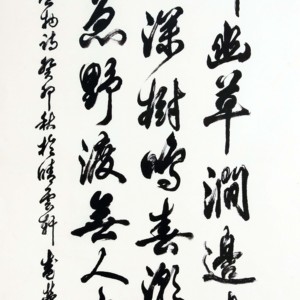 幽草澗邊
深樹鳴春潮
急野渡無人
物詩癸卯秋於晴雲軒